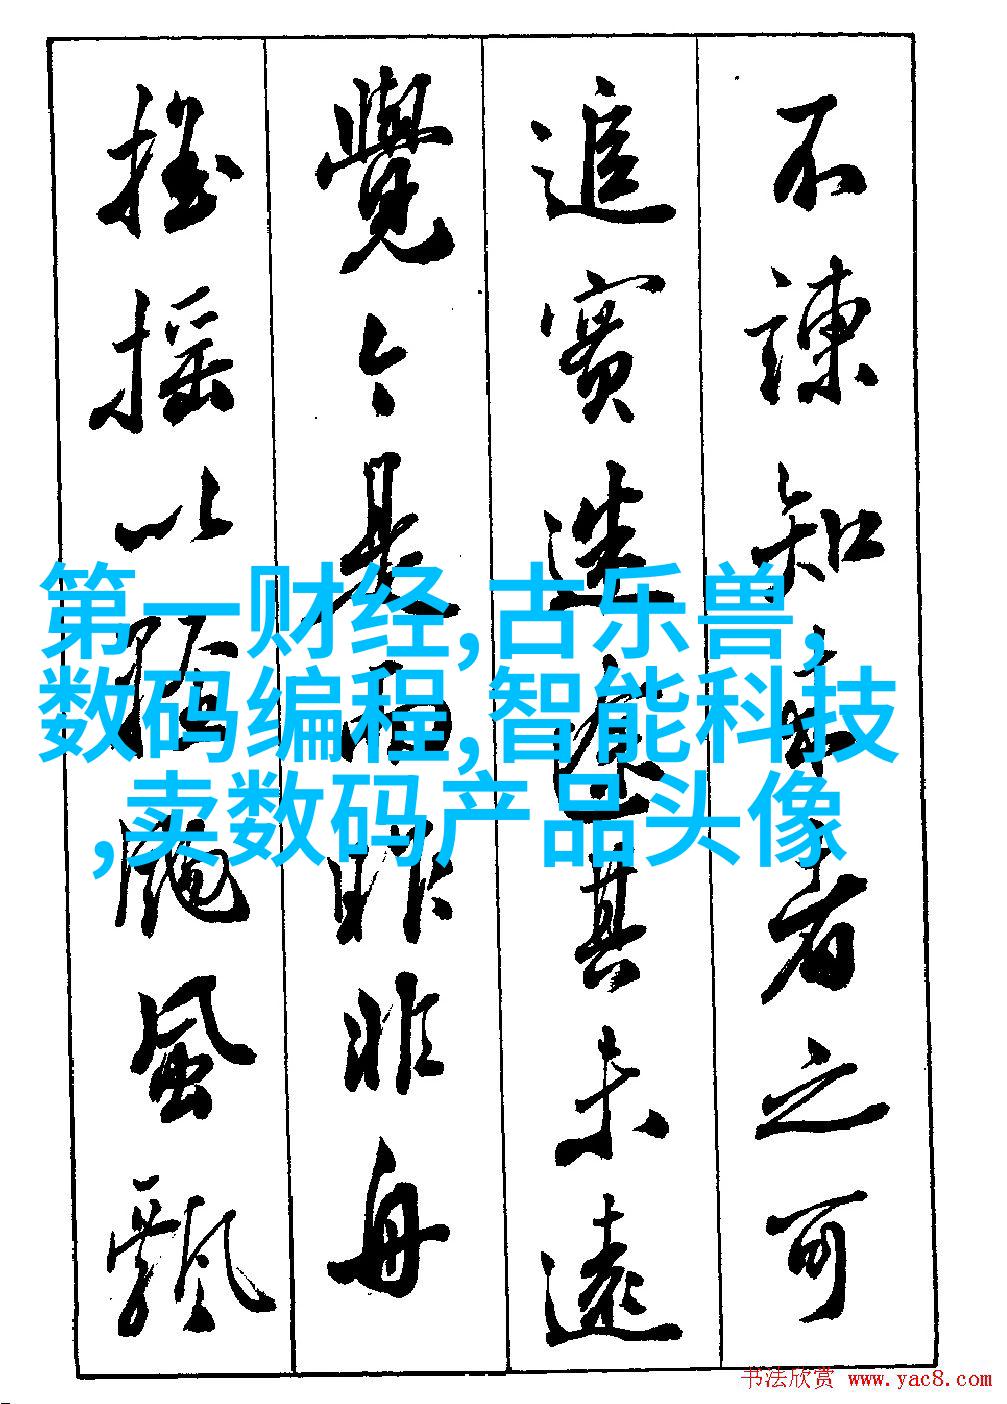 不諫知来者之可
追實迷途其未遠
覺今是而昨非舟
摇摇以輕颺風飄
第一财经,古乐兽,
数码编程,智能科技
,卖数码产品头像
书法欣赏 www.yac8.com